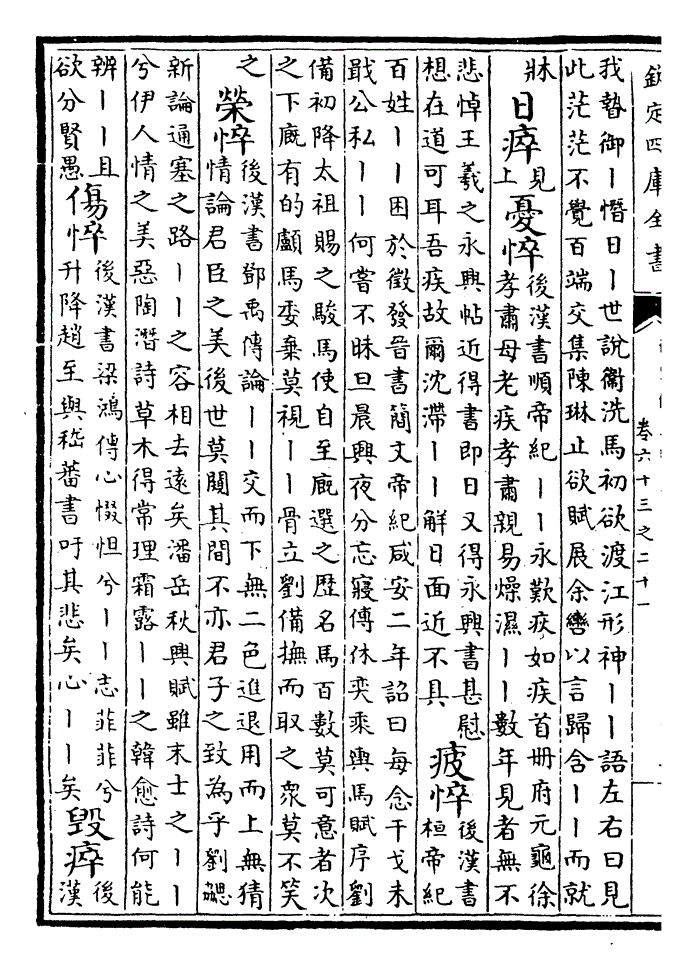 欽定四庫全書
卷六十三之二十一
我蟄御丨憯日丨世說衞洗馬初欲渡江形神丨丨語左右曰見
此茫茫不覺百端交集陳琳止欲賦展余轡以言歸含丨丨而就
牀
日瘁
見
上
憂悴
後漢書順帝紀丨丨永歎疢如疾首冊府元龜徐
孝肅母老疾孝肅親易燥濕丨丨數年見者無不
悲悼王羲之永興帖近得書即日又得永興書甚慰
想在道可耳吾疾故爾沈滯丨丨解日面近不具
疲悴
後漢書
桓帝紀
百姓丨丨困於徵發晉書簡文帝紀咸安二年詔曰每念干戈未
戢公私丨丨何嘗不昧旦晨興夜分忘寢傅休奕乘輿馬賦序劉
備初降太祖賜之駿馬使自至廐選之歷名馬百數莫可意者次
之下廐有的顱馬委棄莫視丨丨骨立劉備撫而取之衆莫不笑
之
榮悴
後漢書鄧禹傳論丨丨交而下無二色進退用而上無猜
情論君臣之美後世莫闚其間不亦君子之致為乎劉勰
新論通塞之路丨丨之容相去遠矣潘岳秋興賦雖末士之丨丨
兮伊人情之美惡陶潛詩草木得常理霜露丨丨之韓愈詩何能
辨丨丨且
欲分賢愚
傷悴
後漢書梁鴻傳心惙怛兮丨丨志菲菲兮
升降趙至與嵇蕃書吁其悲矣心丨丨矣
毀瘁
後
漢